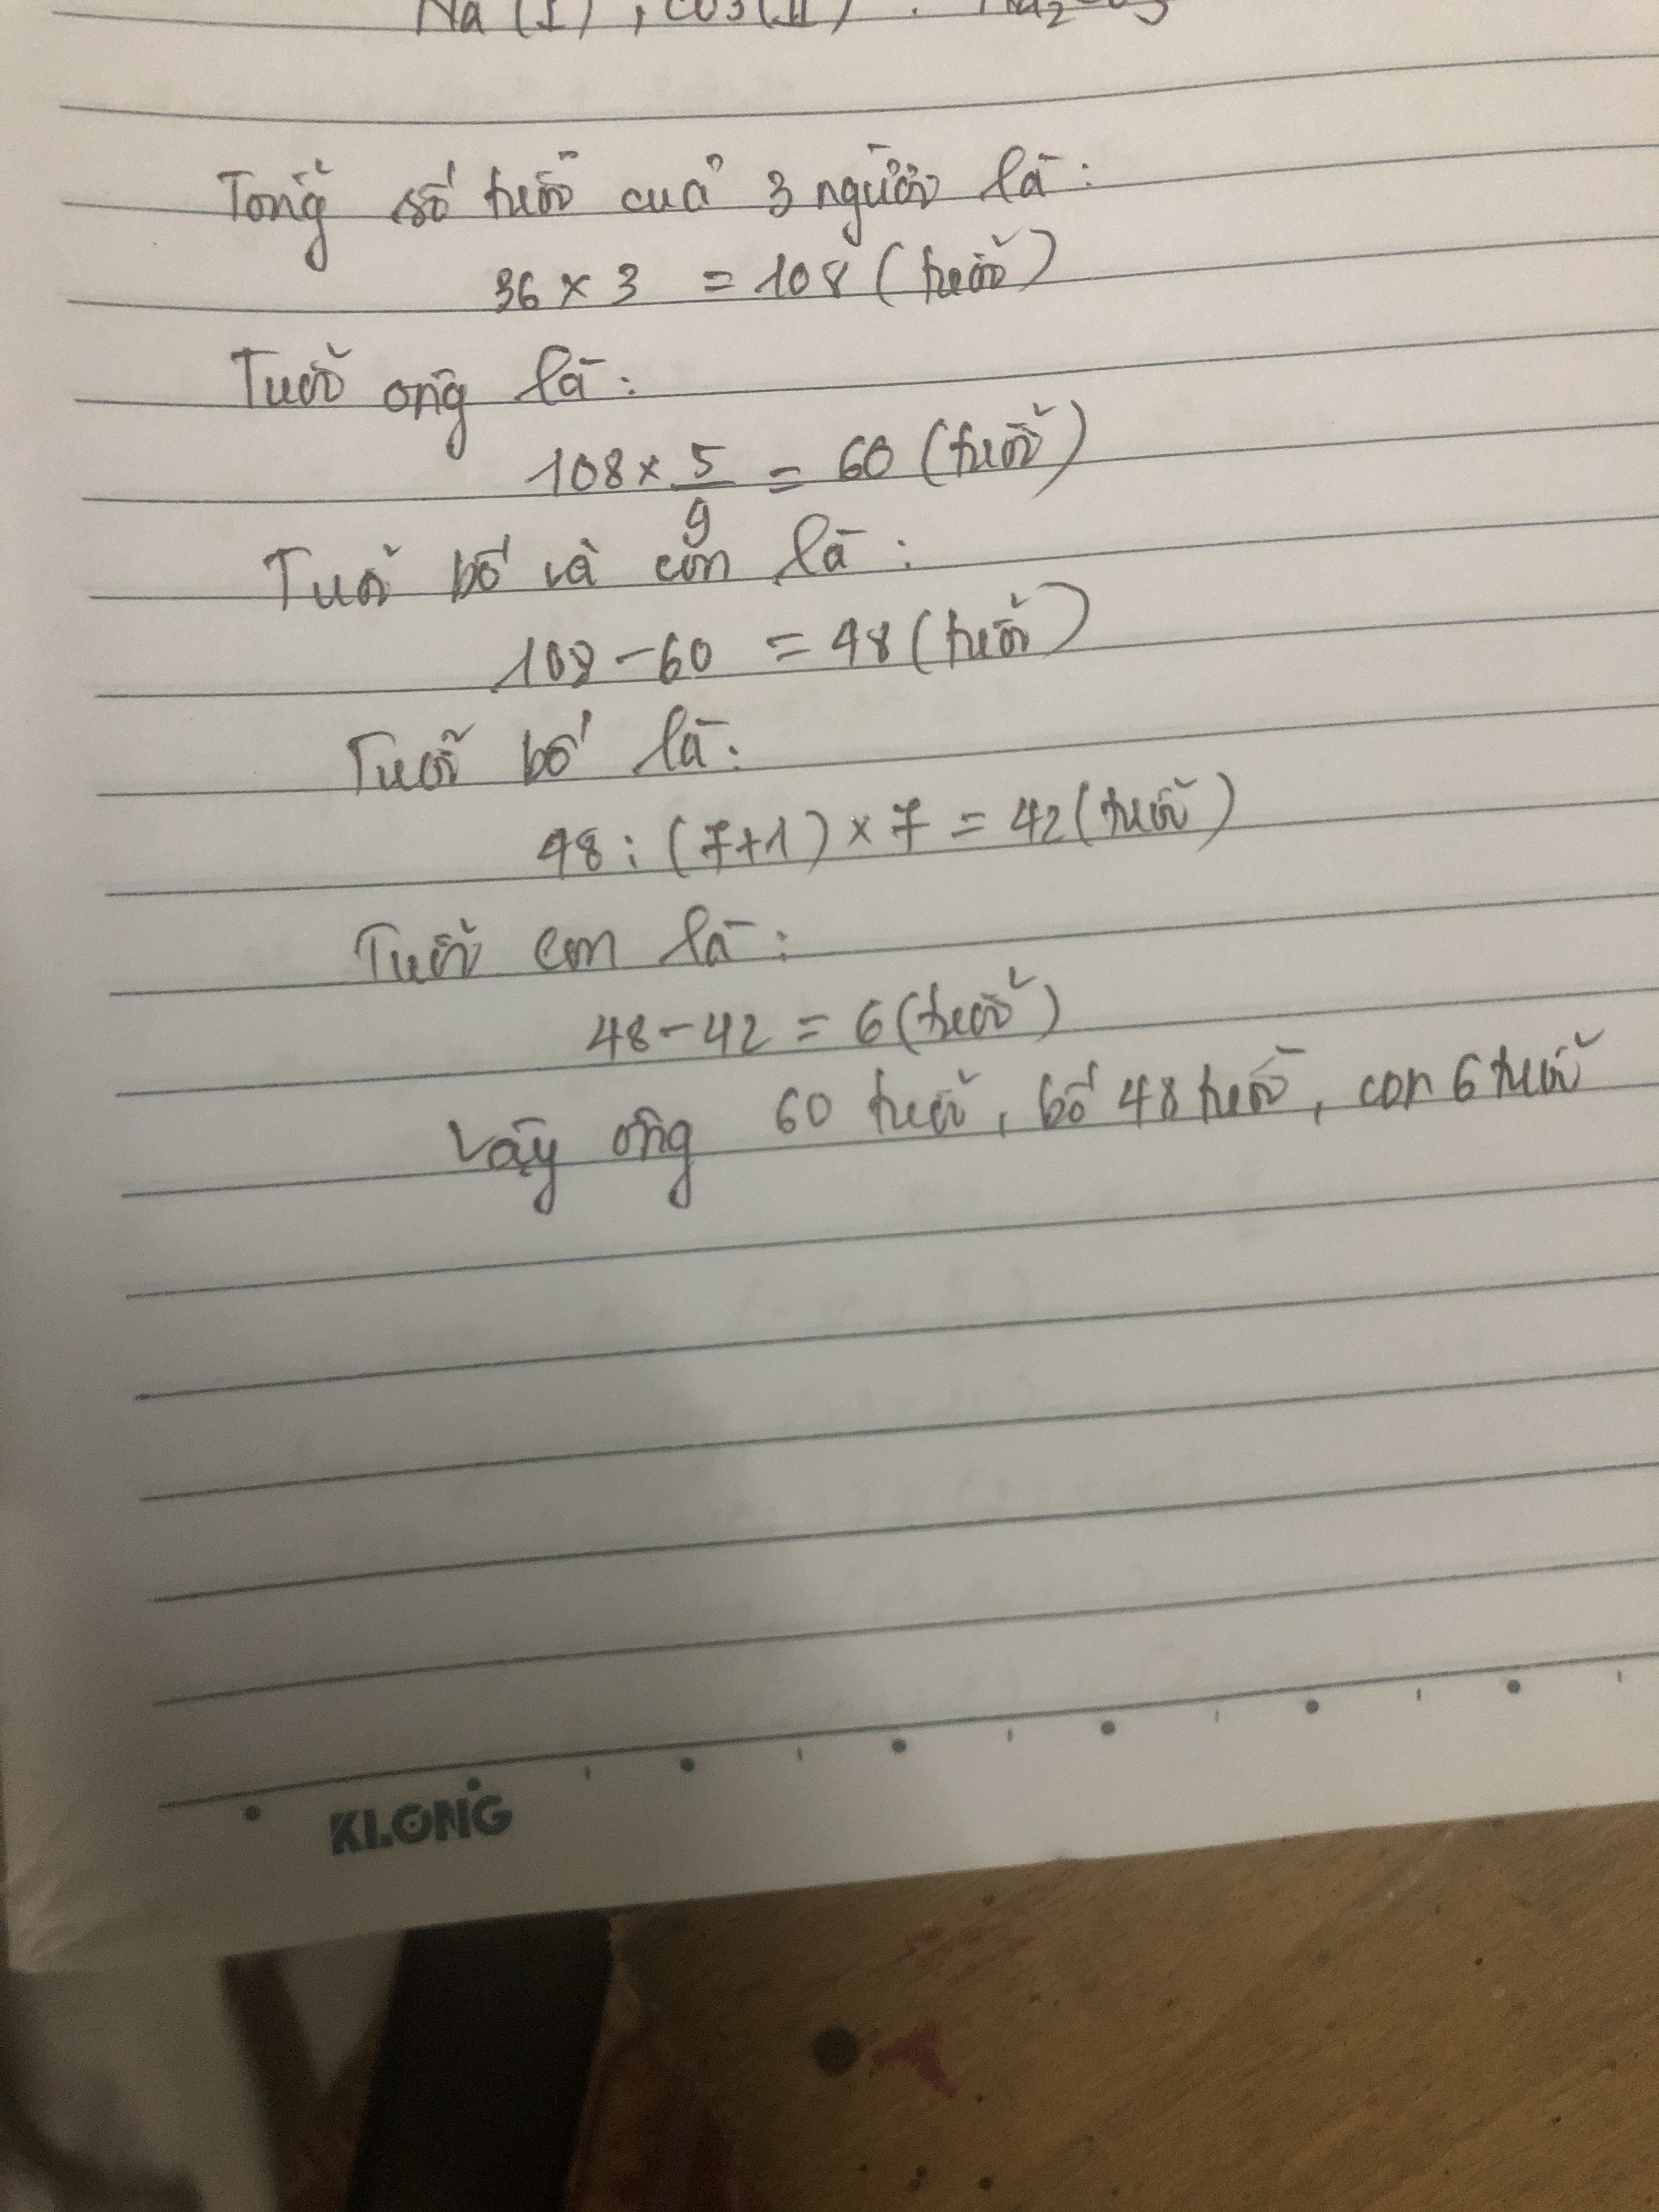 Na (I), CO3(II) : Na2CO3
Tổng số tuổi của 3 người là:
36 x 3 = 108 (tuổi)
Tuổi ông là:
108 x 5/9 = 60 (tuổi)
Tuổi bố và con là:
108 - 60 = 48 (tuổi)
Tuổi bố là:
48 : (7+1) x 7 = 42 (tuổi)
Tuổi con là:
48 - 42 = 6 (tuổi)
Vậy ông 60 tuổi, bố 48 tuổi, con 6 tuổi
KLONG